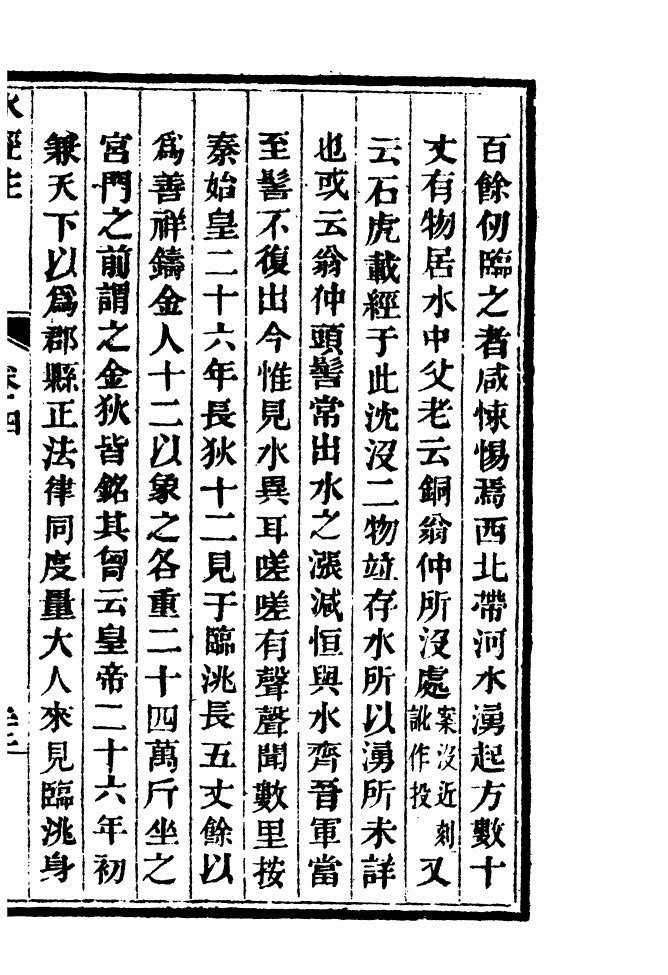 百餘仞臨之者咸悚惕焉西北帶河水湧起方數十
丈有物居水中父老云銅翁仲所沒處案沒近刻訛作投又
云石虎載經于此沈沒二物竝存水所以湧所未詳
也或云翁仲頭髻常出水之漲減恒與水齊晉軍當
至髻不復出今惟見水異耳嗟嗟有聲聲聞數里按
秦始皇二十六年長狄十二見于臨洮長五丈餘以
爲善祥鑄金人十二以象之各重二十四萬斤坐之
宮門之前謂之金狄皆銘其胷云皇帝二十六年初
兼天下以爲郡縣正法律同度量大人來見臨洮身
水經注
卷四